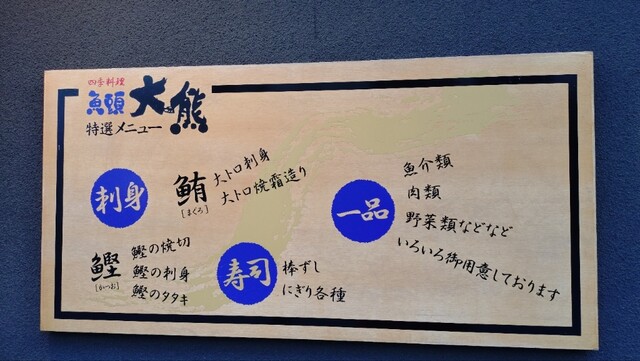 四季料理
魚頭 大熊
特選メニュー
刺身
鮪
[まぐろ]
大トロ刺身
大トロ焼霜造り
鰹
[かつお]
鰹の焼切
鰹の刺身
鰹のタタキ
寿司
棒ずし
にぎり各種
一品
魚介類
肉類
野菜類などなど
いろいろ御用意しております